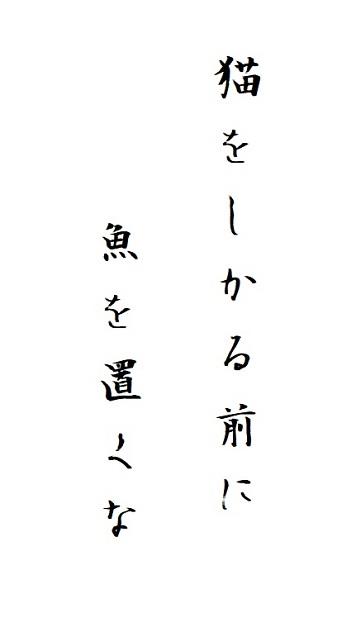 猫をしかる前に
魚を置くな